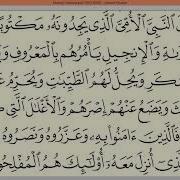 ٱلنَّبِيَّ ٱلْأُمِّيَّ ٱلَّذِي يَجِدُونَهُۥ مَكْتُوبً
ىٰةِ وَٱلْإِنجِيلِ يَأْمُرُهُم بِٱلْمَعْرُوفِ وَ
كَرِ وَيُحِلُّ لَهُمُ ٱلطَّيِّبَٰتِ وَيُحَرِّمُ عَ
ثَ وَيَضَعُ عَنْهُمْ إِصْرَهُمْ وَٱلْأَغْلَٰلَ ٱلَّتِي كَ
فَٱلَّذِينَ ءَامَنُوا۟ بِهِۦ وَعَزَّرُوهُ وَنَصَرُو
ذِيٓ أُنزِلَ مَعَهُۥٓ أُو۟لَٰٓئِكَ هُمُ ٱلْمُفْلِحُو